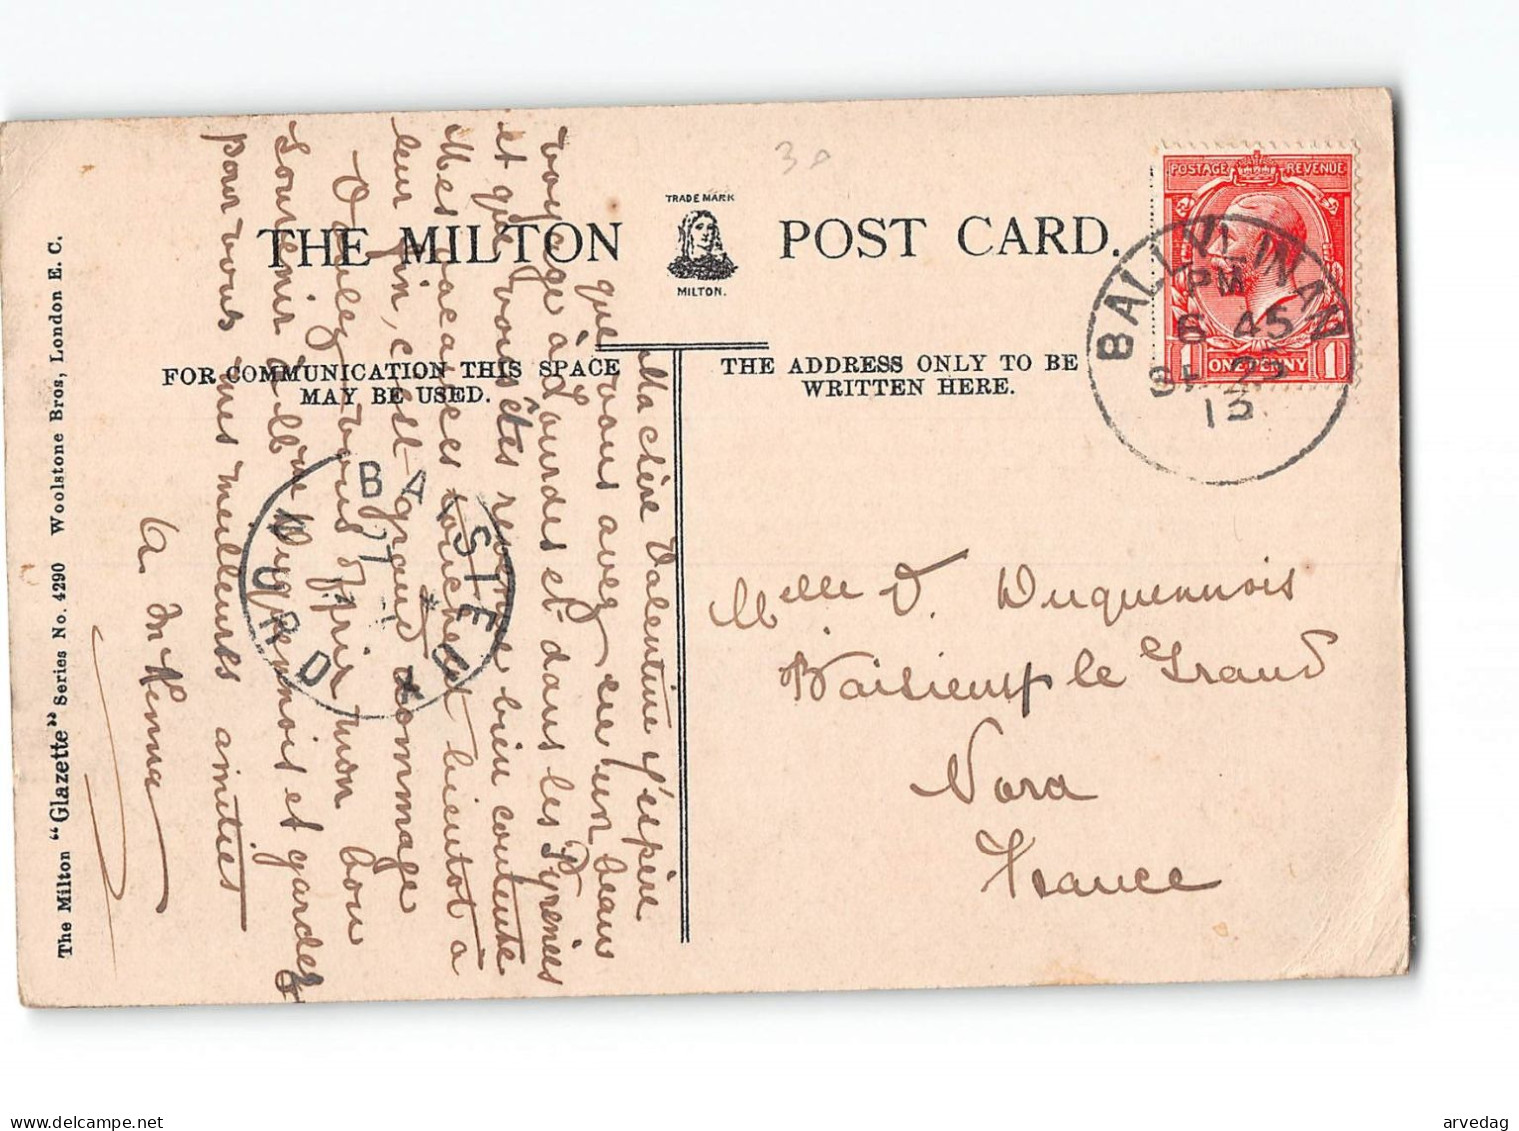 THE MILTON
TRADE MARK
MILTON.
POST CARD.
FOR COMMUNICATION THIS SPACE
MAY BE USED.
THE ADDRESS ONLY TO BE
WRITTEN HERE.
POSTAGE REVENUE
1 ONE PENNY 1
PM
6 45
13
30
Ma chère Valentine j'espère
que vous avez eu un beau
voyage à Lourdes et dans les Pyrénées
et que vous êtes revenue bien contente
Mes vacances touchent bientôt à
leur fin, c'est grand dommage
Voulez vous offrir mon bon
Souvenir à Mme Duquennois et gardez
pour vous mes meilleures amitiés
A. McKenna
Melle V. Duquennois
Baisieux le Grand
Nord
France
BAISIEUX
NORD
The Milton "Glazette" Series No. 4290 Woolstone Bros, London E. C.
arvedag